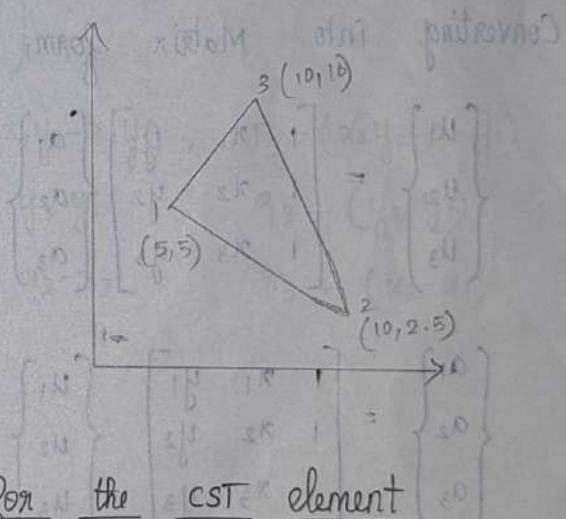 3 (10,10)
1
(5,5)
2
(10, 2.5)
For the CST element